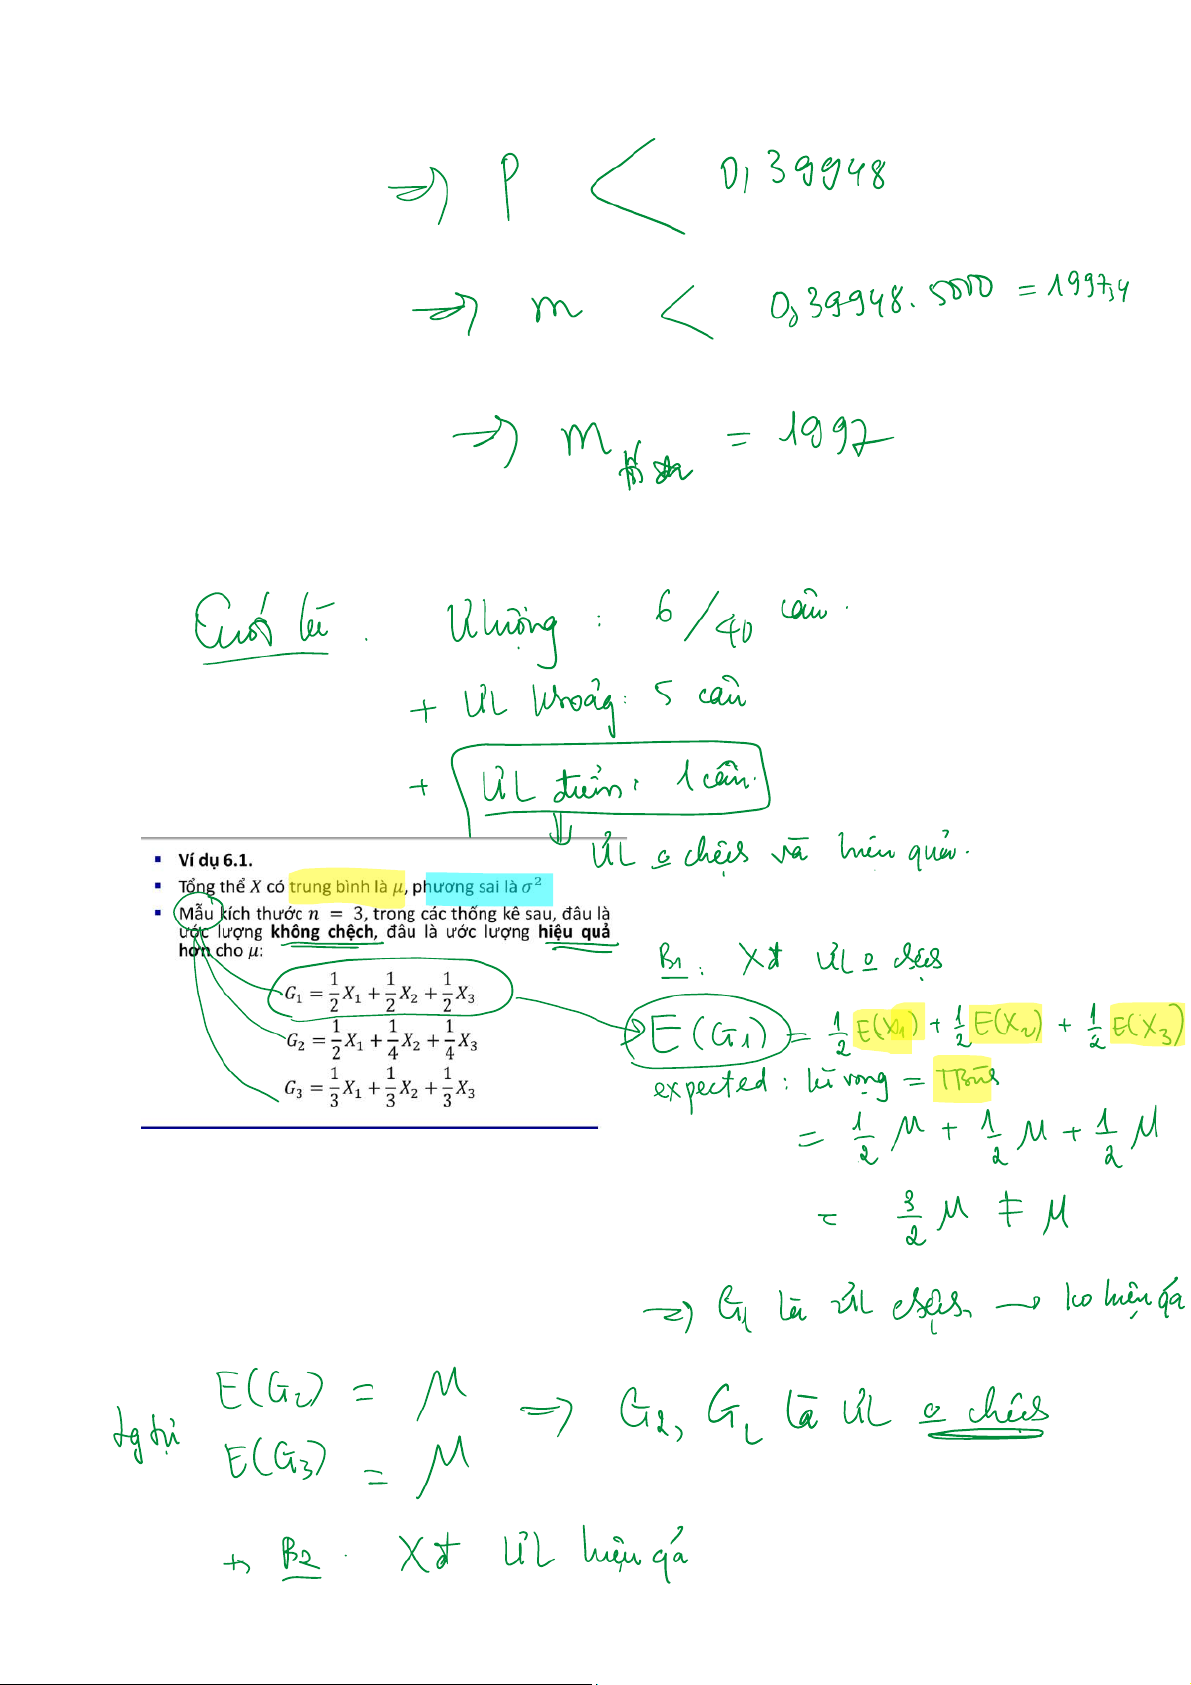 => P < 0,39948
=> m < 0,39948.5000 = 1997,4
=> m = 1997
Cuối kì. Ư lượng: 6/40 câu.
+ ƯL khoảng: 5 câu
+ ƯL điểm: 1 câu.
ƯL o chệch và hiệu quả.
▪ Ví dụ 6.1.
▪ Tổng thể X có trung bình là μ, phương sai là σ²
▪ Mẫu kích thước n = 3, trong các thống kê sau, đâu là
ước lượng không chệch, đâu là ước lượng hiệu quả
hơn cho μ:
G₁ = 1/2 X₁ + 1/2 X₂ + 1/2 X₃
G₂ = 1/2 X₁ + 1/4 X₂ + 1/4 X₃
G₃ = 1/3 X₁ + 1/3 X₂ + 1/3 X₃
B1: Xđ ƯL o chệch
E(G₁) = 1/2 E(X₁) + 1/2 E(X₂) + 1/2 E(X₃)
expected: kì vọng = TBình
= 1/2 μ + 1/2 μ + 1/2 μ
= 3/2 μ ≠ μ
=> G₁ là ƯL chệch → ko hiệu qả
tg tự E(G₂) = μ => G₂, G là ƯL o chệch
E(G₃) = μ
+, B2. Xđ ƯL hiệu qả